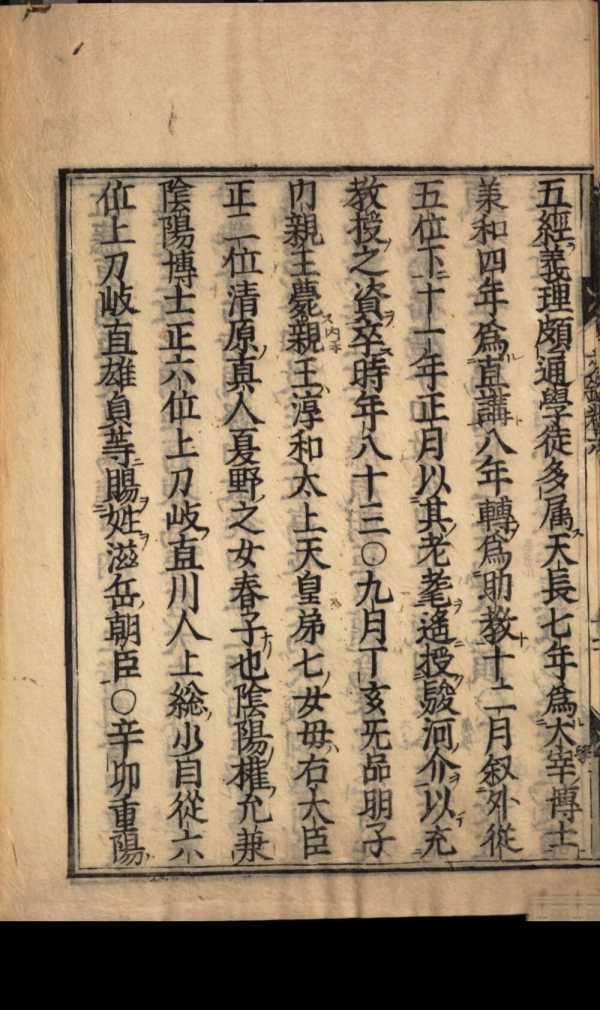 五經義理頗通學徒多属天長七年爲大宰博士
兼和四年爲直講八年轉爲助教十二月叙外從
五位下十一年正月以其老耄遙授駿河介以充
教授之資卒時年八十三〇九月丁亥旡品明子
内親王薨親王淳和太上天皇弟七女毋右大臣
正二位清原真人夏野之女春子也陰陽權允兼
陰陽博士正六位上刀岐直川人上総少目從六
位上刀岐直雄貞等賜姓滋岳朝臣〇辛卯重陽